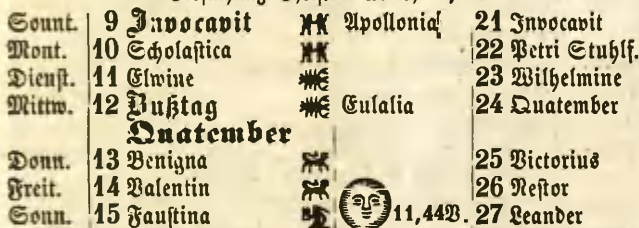 Sonnt. 9 Invocavit Apollonia 21 Invocavit
Mont. 10 Scholastica 22 Petri Stuhlf.
Dienst. 11 Elwine 23 Wilhelmine
Mittw. 12 Bußtag Eulalia 24 Quatember
Quatember
Donn. 13 Benigna 25 Victorius
Freit. 14 Valentin 26 Nestor
Sonn. 15 Faustina 11,44V. 27 Leander